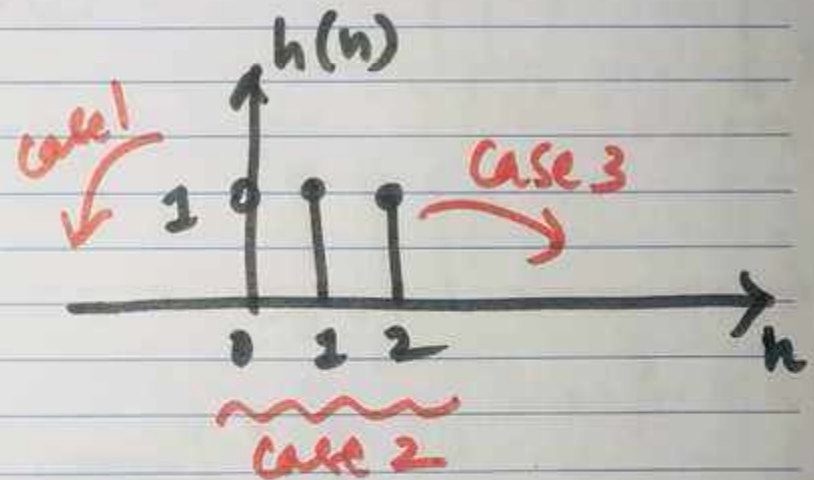 h(n)
case 1
case 3
1
0 1 2
n
case 2